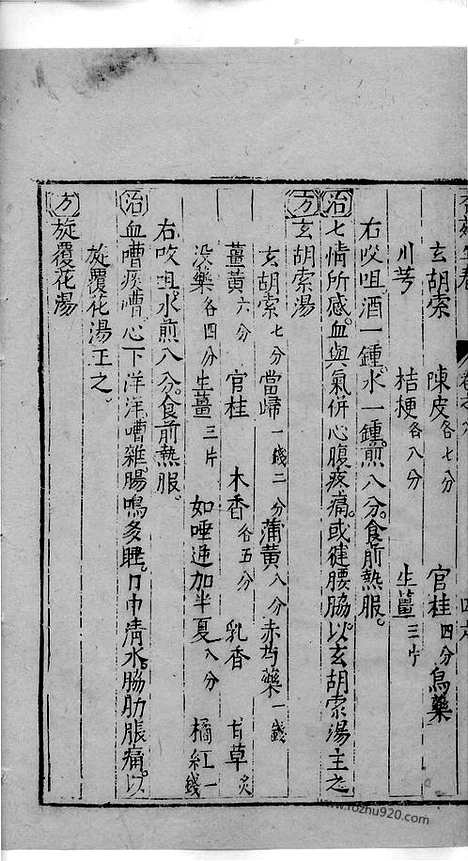 玄胡索 陳皮各七分 官桂四分 烏藥
川芎 桔梗各八分 生薑三片
右㕮咀酒一鍾水一鍾煎八分食前熱服。
治 七情所感血與氣併心腹疼痛。或徤腰脇以玄胡索湯主之
方 玄胡索湯
玄胡索七分 當歸一錢二分 蒲黃八分 赤芍藥一錢
薑黃六分 官桂 木香各五分 乳香 甘草炙
没藥各四分 生薑三片 如唾逆加半夏八分 橘紅一錢
右㕮咀。水煎八分。食前熱服。
治 血嘈痰嘈心下洋洋嘈雜。腸鳴多唾。口中清水。脇肋脹痛。以
旋覆花湯主之。
方 旋覆花湯
www.rozhu920.com